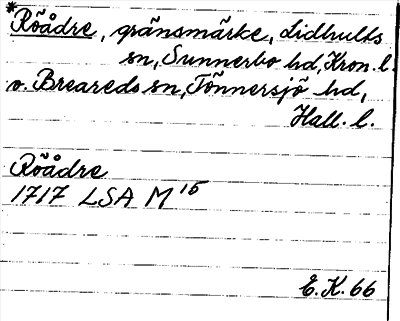 *Röådre, gränsmärke, Lidhults
sn, Sunnerbo hd, Kron. l.
o. Breareds sn, Tönnersjö hd,
Hall. l.
Röådre
1717 LSA M 15
E.K. 66